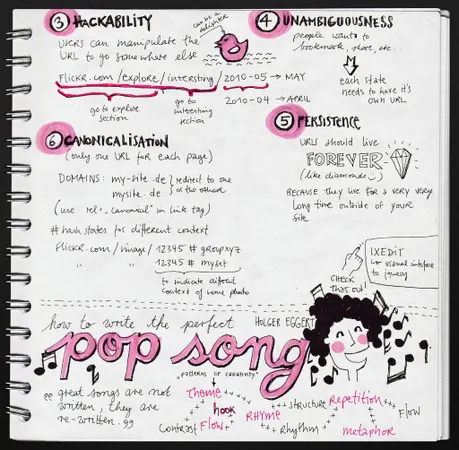 ③ HACKABILITY
users can manipulate the
URL to go somewhere else
can be a
delighter
Flickr.com/explore/intersting/2010-05 → MAY
go to explore
section
go to
interesting
section
2010-04 → APRIL
④ UNAMBIGUOUSNESS
people want to
bookmark, share, etc..
each state
needs to have it's
own URL
⑤ PERSISTENCE
URLs should live
FOREVER
(like diamonds :))
BECAUSE they live for a very very
long time outside of your
site
⑥ CANONICALISATION
(only one URL for each page)
DOMAINS: my-site.de
mysite.de
redirect to one
of the others
(use rel="canonical" in link tag)
# hash states for different context
Flickr.com/image/12345 # groupxyz
" " 12345 # myset
to indicate different
context of same photo
IXEDIT
↳ visual interface
to jquery
CHECK
That out!
how to write the perfect
HOLGER EGGERT
pop song
"patterns or creativity"
great songs are not
written, they are
re-written.
Theme
hook
Contrast Flow
RHYME
structure
Rhythm
Repetition
metaphor
Flow